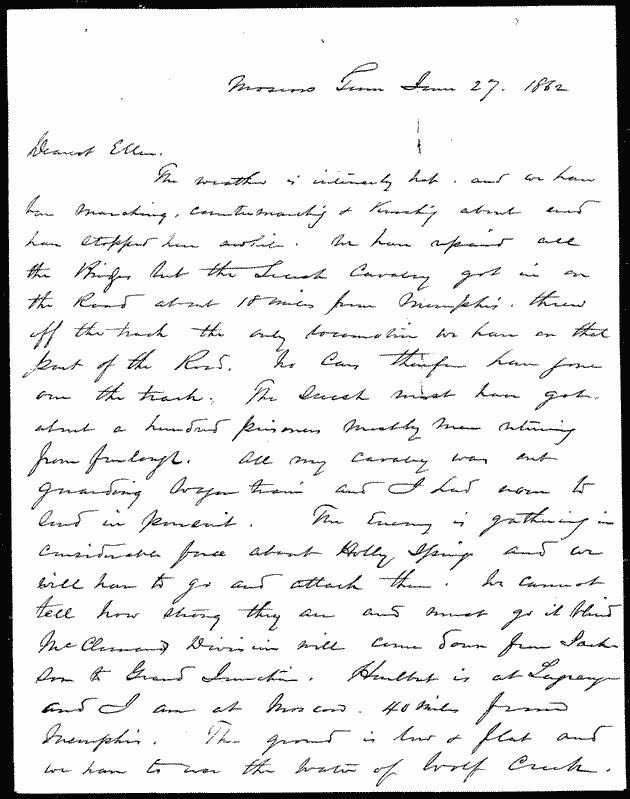 Moscow Tenn June 27. 1862
Dearest Ellen.
The weather is intensely hot. and we have
been marching, countermarching & Knocking about and
have stopped here awhile. We have repaired all
the Bridges but the Secesh Cavalry got in on
the Road about 18 miles from Memphis. threw
off the track the only locomotive we have on that
part of the Road. No Cars therefore have gone
over the track. The Secesh must have got
about a hundred prisoners mostly men returning
from furlough. All my cavalry was out
guarding Wagon train and I had none to
send in pursuit. The Enemy is gathering in
considerable force about Holly Springs and we
will have to go and attack them. We cannot
tell how strong they are and must go it blind
McClernands Division will come down from Jack
son to Grand Junction. Hurlbut is at Lagrange
and I am at Moscow. 40 miles from
Memphis. The ground is low & flat and
we have to use the water of Wolf Creek.